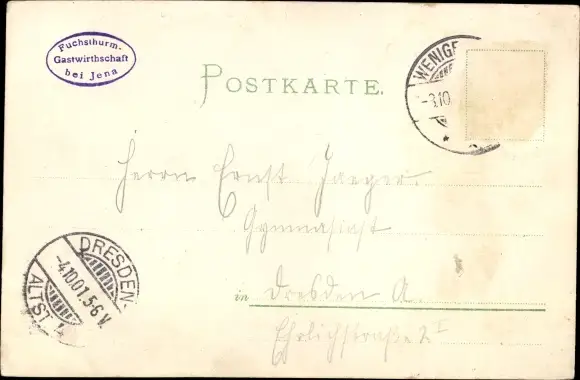 Fuchsthurm-
Gastwirthschaft
bei Jena
POSTKARTE.
WENIGE
-3.10
Herrn Ernst Jaeger.
Gymnasiast
in Dresden A.
Ehrlichstraße 2 I
DRESDEN-
-4.10.01.5-6 V.
ALTST.